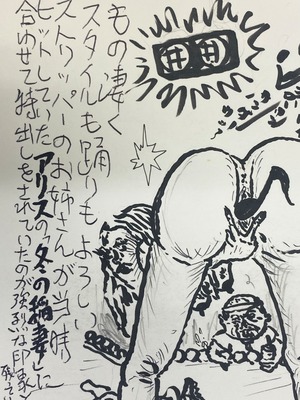 もの凄く
スタイルも踊りもよろしい
ストリッパーのお姉さんが当時
ヒットしていたアリスの「冬の稲妻」に
合わせて特出しをされていたのが強烈な印象で
残ってい